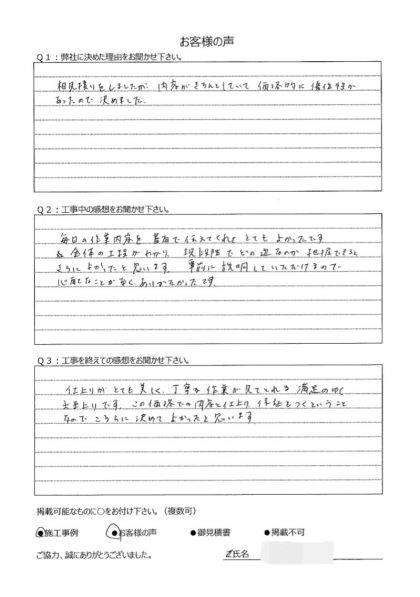 お客様の声
Q1：弊社に決めた理由をお聞かせ下さい。
相見積りをしましたが、内容がきちんとしていて価格的に優位性が
あったので決めました。
Q2：工事中の感想をお聞かせ下さい。
毎日の作業内容を書面で伝えてくれとてもよかったです
全体の工程がわかり、現段階でどの辺なのか把握できると
さらによかったと思います。事前に説明していただけるので
心配なことがなく、ありがたかったです。
Q3：工事を終えての感想をお聞かせ下さい。
仕上りがとても美しく、丁寧な作業が見てとれる満足のゆく
仕上りです。この価格での内容と仕上り、保証もつくということ
なのでこちらに決めてよかったと思います。
掲載可能なものに○をお付け下さい。（複数可）
●施工事例 ●お客様の声 ●御見積書 ●掲載不可
ご協力、誠にありがとうございました。 氏名